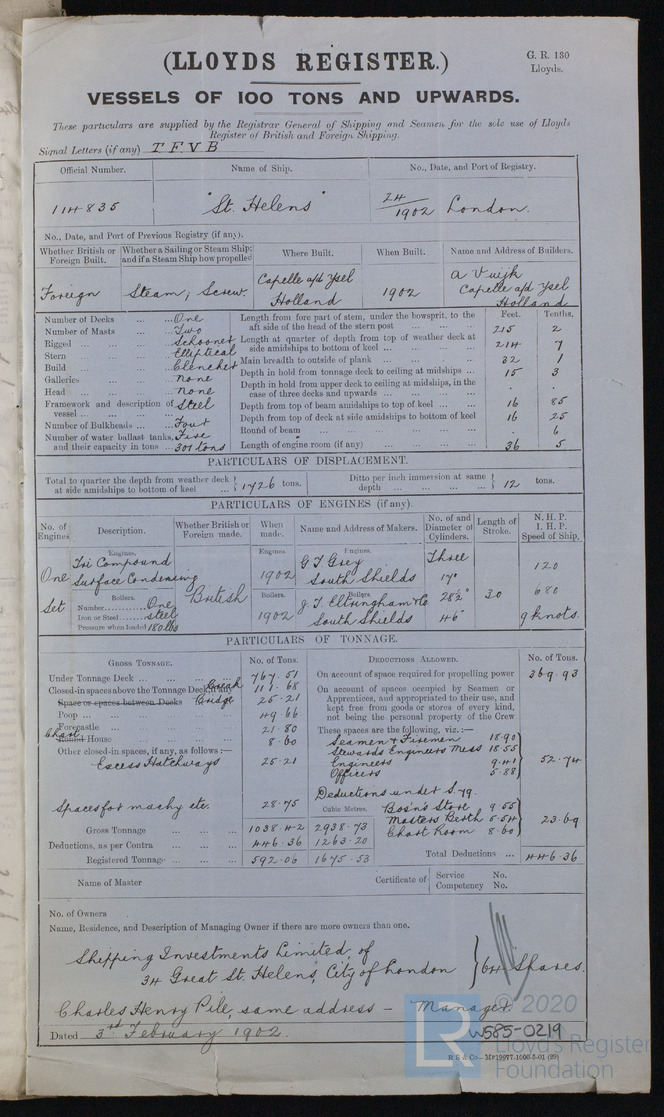 (LLOYDS REGISTER.)
G. R. 130
Lloyds.
VESSELS OF 100 TONS AND UPWARDS.
These particulars are supplied by the Registrar General of Shipping and Seamen for the sole use of Lloyds
Register of British and Foreign Shipping.
Signal Letters (if any) T F V B
Official Number. Name of Ship. No., Date, and Port of Registry.
114835 "St. Helens" 24/1902 London.
No., Date, and Port of Previous Registry (if any).
Whether British or Foreign Built. Whether a Sailing or Steam Ship; and if a Steam Ship how propelled Where Built. When Built. Name and Address of Builders.
Foreign Steam; Screw. Capelle a/d Ysel Holland 1902 A Vuijk Capelle a/d Ysel Holland
Number of Decks ... ... One
Number of Masts ... ... Two
Rigged ... ... ... Schooner
Stern ... ... ... Elliptical
Build ... ... ... Clencher
Galleries ... ... None
Head ... ... ... None
Framework and description of vessel ... ... ... Steel
Number of Bulkheads ... Four
Number of water ballast tanks, Five
and their capacity in tons ... 301 tons
Feet. Tenths.
Length from fore part of stem, under the bowsprit, to the aft side of the head of the stern post ... ... ... 215 2
Length at quarter of depth from top of weather deck at side amidships to bottom of keel ... ... ... 214 7
Main breadth to outside of plank ... ... ... 32 1
Depth in hold from tonnage deck to ceiling at midships ... 15 3
Depth in hold from upper deck to ceiling at midships, in the case of three decks and upwards ... ... ... . .
Depth from top of beam amidships to top of keel ... ... 16 85
Depth from top of deck at side amidships to bottom of keel 16 25
Round of beam ... ... ... ... ... . 6
Length of engine room (if any) ... ... ... 36 5
PARTICULARS OF DISPLACEMENT.
Total to quarter the depth from weather deck at side amidships to bottom of keel ... 1726 tons. Ditto per inch immersion at same depth ... ... ... 12 tons.
PARTICULARS OF ENGINES (if any).
No. of Engines. Description. Whether British or Foreign made. When made. Name and Address of Makers. No. of and Diameter of Cylinders. Length of Stroke. N. H. P. I. H. P. Speed of Ship.
Engines. Engines. Engines.
One Set Tri Compound Surface Condensing British 1902 G T Grey South Shields Three 17" 28½" 46" 30 120 680 9 knots.
Boilers. Boilers. Boilers.
Number One
Iron or Steel steel
Pressure when loaded 180 lbs
1902 J. T. Eltringham & Co South Shields
PARTICULARS OF TONNAGE.
GROSS TONNAGE. No. of Tons. DEDUCTIONS ALLOWED. No. of Tons.
Under Tonnage Deck ... ... ... 767.51
Closed-in spaces above the Tonnage Deck, if any Break 111.68
Space or spaces between Decks Bridge 25.21
Poop ... ... ... 49.66
Forecastle ... ... ... 21.80
Round House Chart ... ... 8.60
Other closed-in spaces, if any, as follows :—
Excess Hatchways 25.21
Spaces for machy etc. 28.75
Cubic Metres.
Gross Tonnage ... ... ... 1038.42 2938.73
Deductions, as per Contra ... ... ... 446.36 1263.20
Registered Tonnage ... ... ... 592.06 1675.53
On account of space required for propelling power 369.93
On account of spaces occupied by Seamen or Apprentices, and appropriated to their use, and kept free from goods or stores of every kind, not being the personal property of the Crew
These spaces are the following, viz. :—
Seamen & Firemen 18.90
Stewards Engineers Mess 18.55
Engineers 9.41
Officers 5.88
52.74
Deductions under S. 79.
Bosn's Store 9.55
Masters Berth 5.54
Chart Room 8.60
23.69
Total Deductions ... 446.36
Name of Master Certificate of Service No. Competency No.
No. of Owners
Name, Residence, and Description of Managing Owner if there are more owners than one.
Shipping Investments Limited, of
34 Great St. Helens, City of London } 64 Shares.
Charles Henry Pile, same address – Manager.
Dated 3rd February 1902.
© 2020
W585-0219
LR
Lloyd's Register
Foundation
R S & Co—M 19977-1000-5-01 (29)